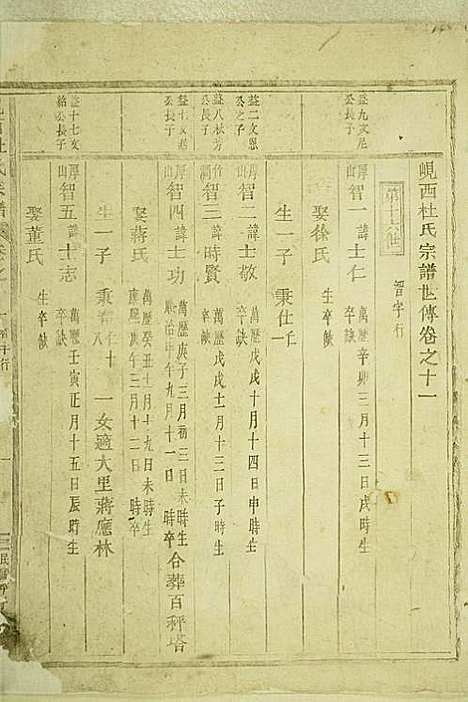 峴西杜氏宗譜世傳卷之十一
第十七世
智字行
益九文尼公長子
厚山
智一諱士仁
萬歷辛卯三月十三日戌時生
卒缺
娶徐氏
生卒缺
生一子 秉仕一
益二文恩公之子
厚山
智二諱士敬
萬歷戊戌十月十四日申時生
卒缺
益八秋芳公長子
竹澗
智三諱時賢
萬歷戊戌十一月十三日子時生
卒缺
益十文 公長子
厚山
智四諱士功
萬歷庚子三月初三日未時生
順治甲午九月十一日 時卒
合葬百秤塔
娶蔣氏
萬歷癸丑十一月十九日未時生
康熙庚午三月十二日 時卒
生一子 秉 仁十八
一女適大里蔣應林
益十七文給公長子
厚山
智五諱士志
萬歷壬寅正月十五日辰時生
卒缺
娶董氏
生卒缺